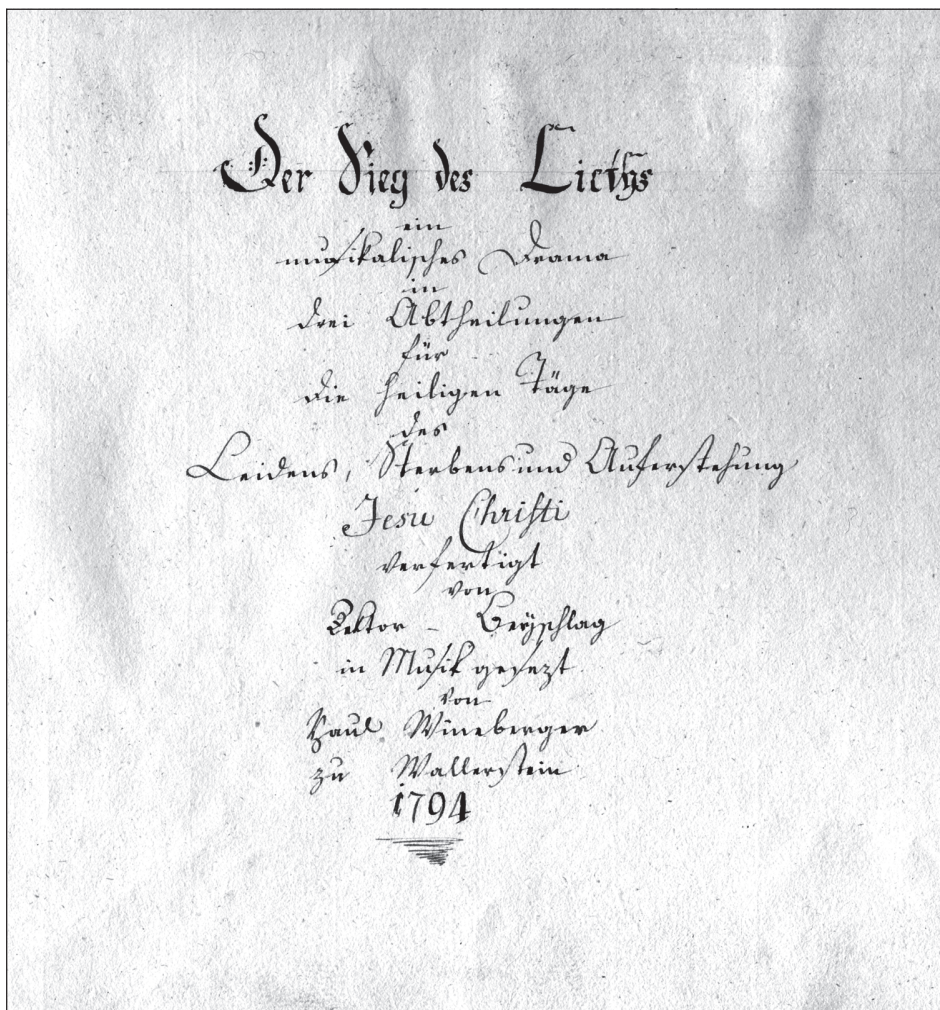 Der Sieg des Lichts
ein
musikalisches Drama
in
drei Abtheilungen
für
die heiligen Täge
des
Leidens, Sterbens und Auferstehung
Jesu Christi
verfertigt
von
Rektor – Beÿschlag
in Musik gesezt
von
Paul Wineberger
zu Wallerstein
1794